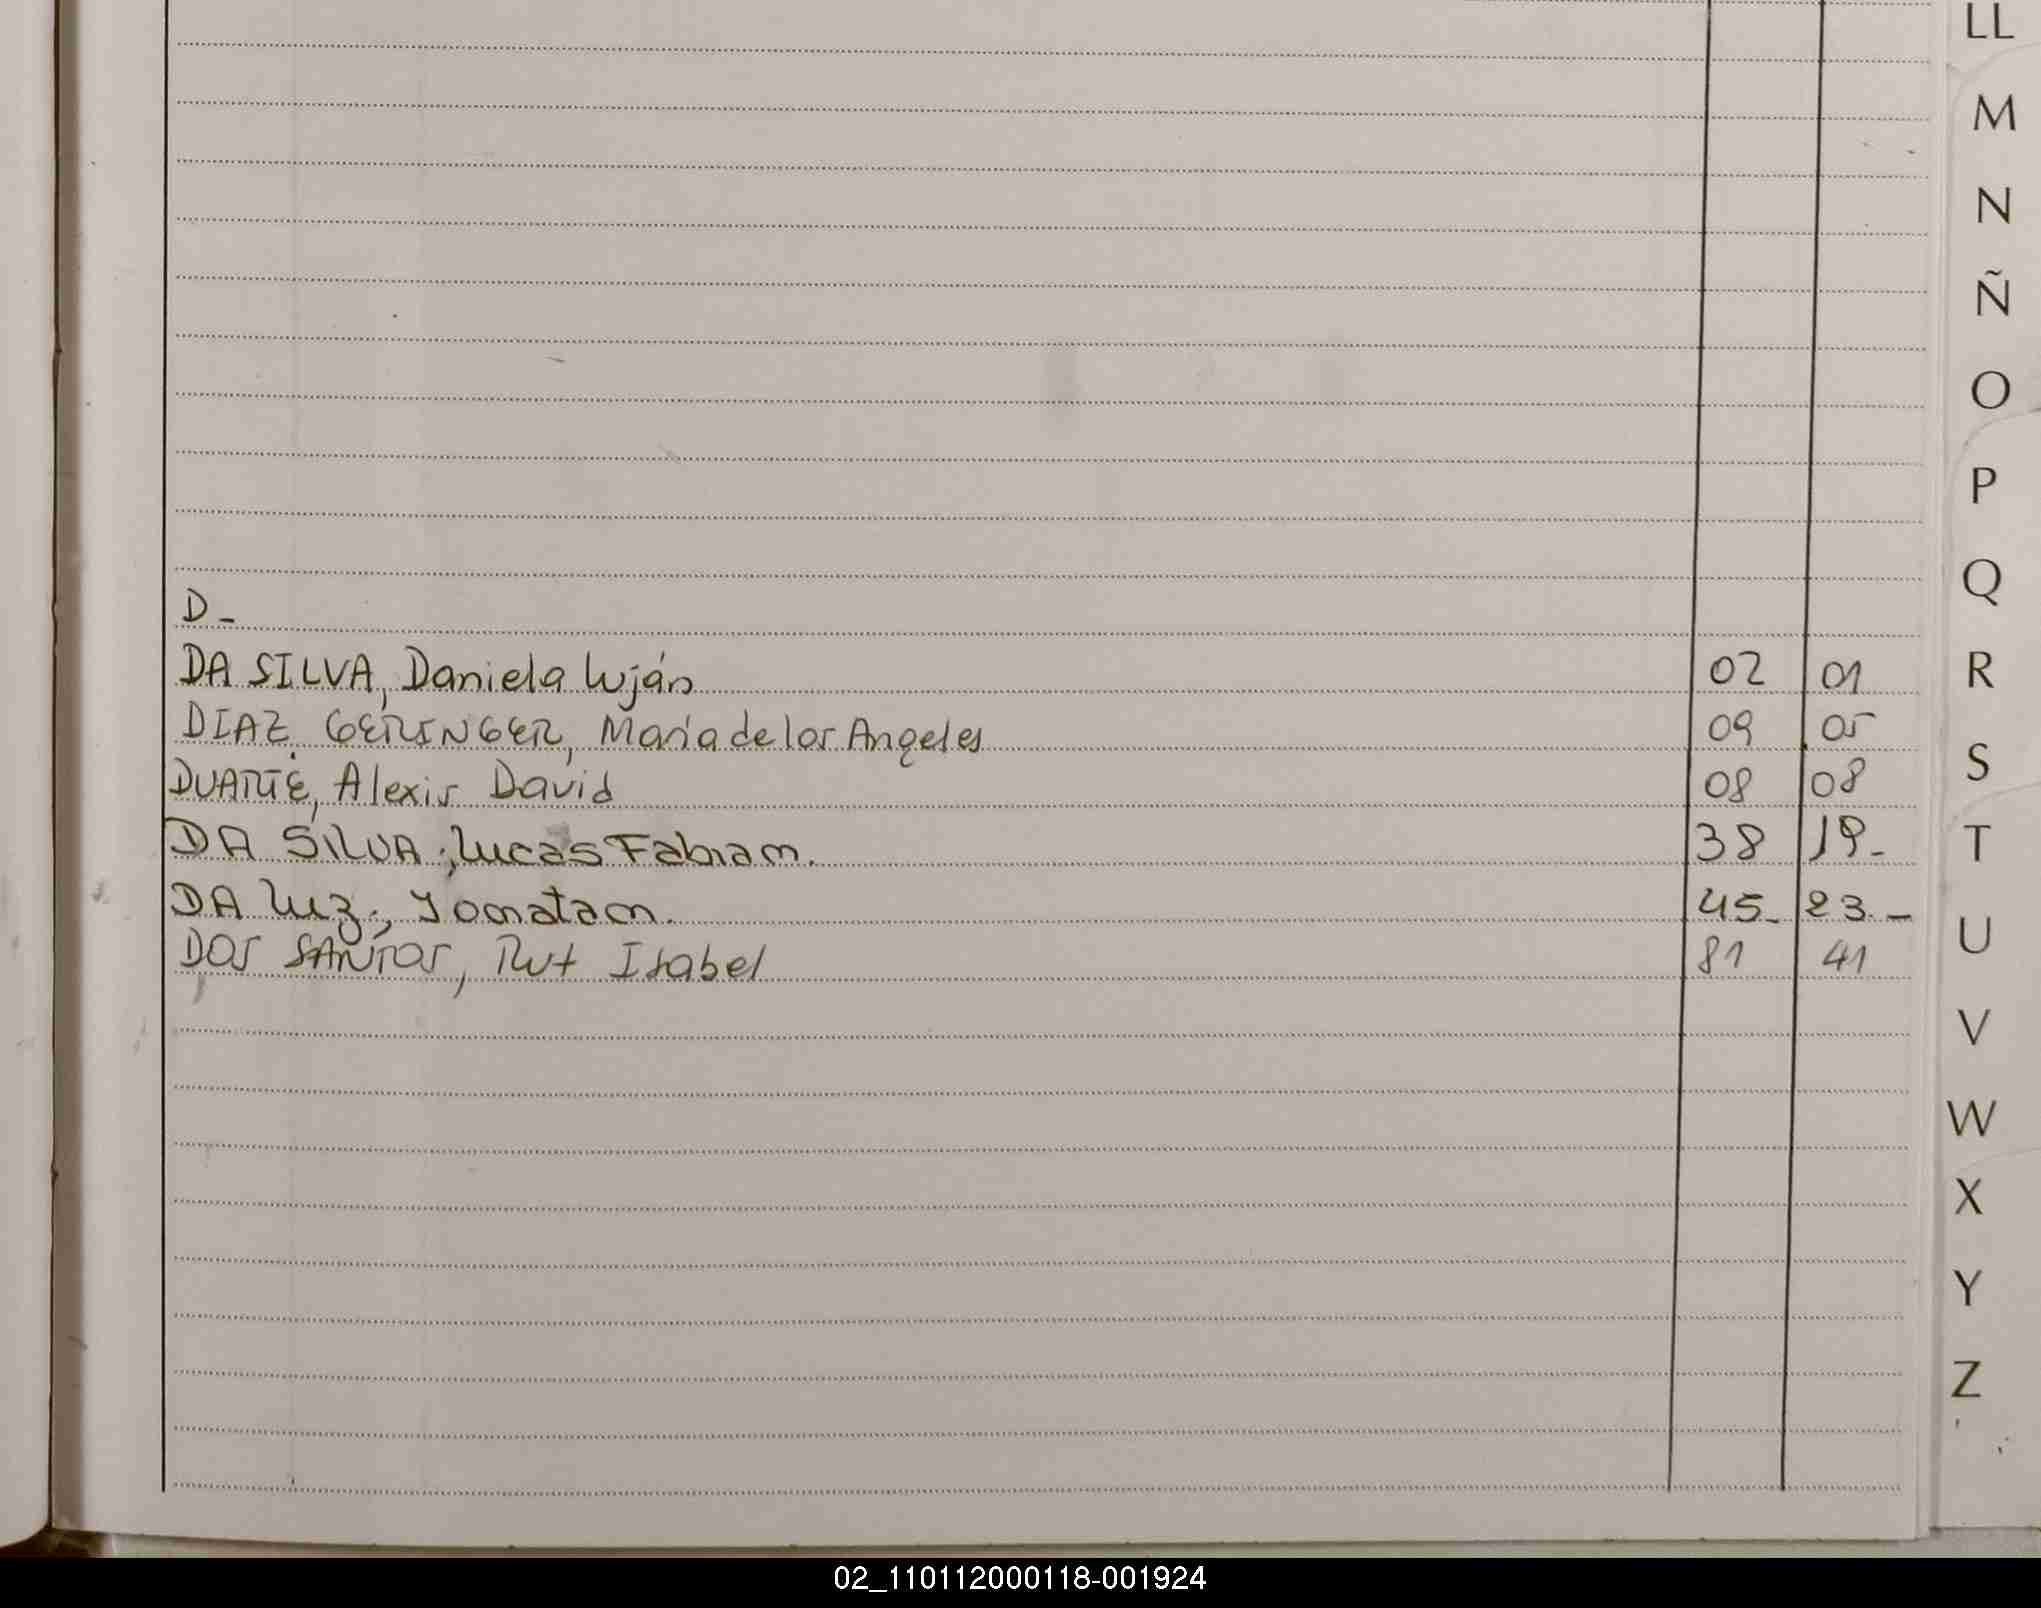 LL
M
N
Ñ
O
P
Q
R
S
T
U
V
W
X
Y
Z
D-
DA SILVA, Daniela Luján 02 01
DIAZ GERINGER, Maria de los Angeles 09 05
DUARTE, Alexis David 08 08
DA SILVA, Lucas Fabian. 38 19-
DA Luz, Jonatan. 45- 23-
DOS SANTOS, Rut Isabel 81 41
02_110112000118-001924